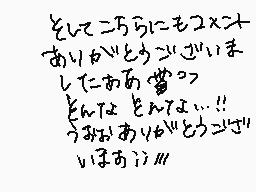 そしてこちらにもコメント
ありがとうございま
したああ
そんな そんな…!!
うおおありがとうござ
いまあ;;///